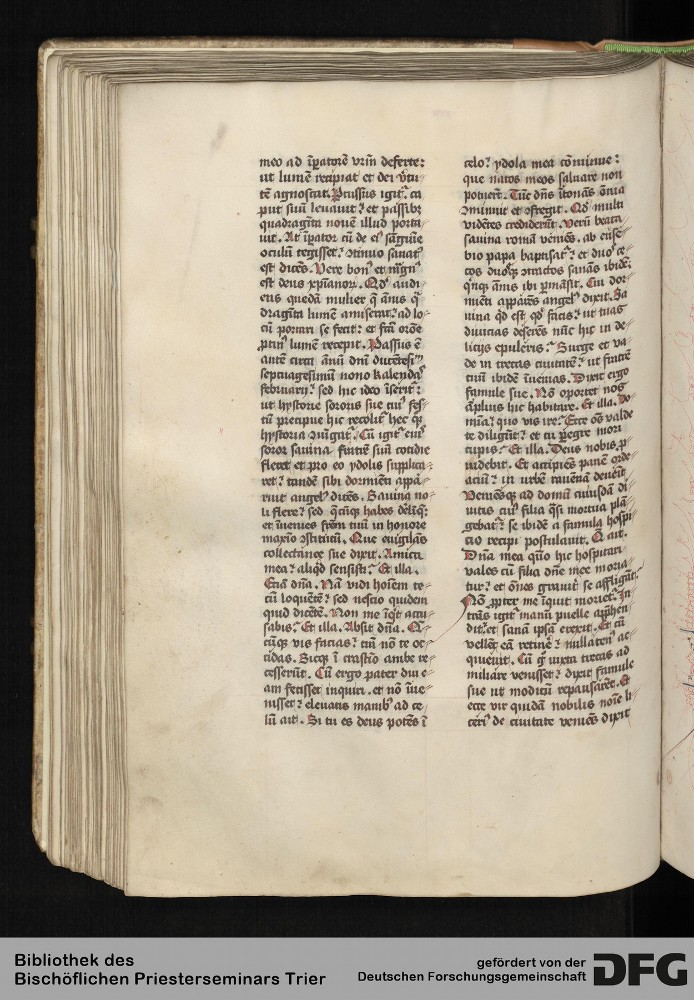 meo ad īꝑatorē vrīm deferte:
ut lumē recipiat et dei v̄tu-
tē agnoscat. Prussus igit᷑. ca
put suū leuauit: et passibꝫ
quadragīta nouē illud porta-
uit. At īꝑator cū de eiꝰ sāguīe
oculū tegisset: ↄtinuo sanatꝰ
est dicēs. Vere bonꝰ et mīgnꝰ
est deus xp̄ianoꝝ. Qd̓ audi-
ens quedā mulier q̄ ānis q̓-
dragīta lumē amiserat: ad lo-
cū portari se fecit: et fc̄ā orōe
ꝓtinꝰ lumē recepit. Passus ē
autē circa ānū dnī ducētesiᵐ
septuagesimū nono kalendaꝭ
februarij: sed hic ideo īserit᷑:
ut hystorie sororis sue cuiꝰ fes-
tū precipue hic recolit᷑ hec qꝫ
hystoria ↄiūgat᷑. Cū igit᷑ eiꝰ
soror sauina fratrē suū cotidie
fleret et pro eo ydolis supplica-
ret: tandē sibi dormiēti appa-
ruit angelꝰ dicēs. Sauina no-
li flere: sed q̄cūqꝫ habes delīqꝫ:
et īuenies frēm tuū in honore
maxīo ↄstitutū. Que euigilās
collectanee sue dixit. Amica
mea: aliqd̓ sensisti: Et illa.
Etiā dn̄a. Nā vidi hoīem te-
cū loquētē: sed nescio quidem
quid dicētē. Non me īqͥt accu-
sabis: Et illa. Absit dn̄a. Q̄-
cūqꝫ vis facias: tm̄ nō te oc-
cidas. Sicqꝫ ī crastīo ambe re-
cesserūt. Cū ergo pater diu e-
am fecisset inquiri. et nō īue-
nisset: eleuatis manibꝰ ad ce-
lū ait. Si tu es deus potēs ī
celo: ydola mea cōminue:
que natos meos saluare non
potuerūt. Tūc dn̄s ītonās ōnia
ↄminuit et ↄfregit. Qd̓ multi
vidētes crediderūt. Verū beata
sauina romā veniēs. ab eūse-
bio papa baptisat᷑: et duoꝰ ce-
cos duosqꝫ ↄtractos sanās ibidē.
qͥnqꝫ ānis ibi ꝑmāsit. Cui dor-
miēti appārēs angelꝰ dixit. Sa
uina qd̓ est qd̓ facis: ut tuas
diuicias deserēs nūc hic in de-
licijs epuleris: Surge et va-
de in trecas ciuitatē: ut fratrē
tuū ibidē īuenias. Dixit ergo
famule sue. Nō oportet nos
āplius hic habitare. Et illa. Do-
mīa: quo vis ire: Ecce oēs valde
te diligūt: et tu ꝑegre mori
cupis: Et illa. Deus nobis ꝓ-
uidebit. Et accipiēs panē orde-
aciū: in urbē rauenā deuēit.
Veniēsqꝫ ad domū cuiusdā di-
uitis cuiꝰ filia q̄si mortua plā-
gebat᷑: se ibidē a famula hospi-
cio recipi postulauit. Q̄ ait.
Dn̄a mea quō hic hospitari
vales cū filia dn̄e mee moria-
tur: et oēs grauit᷑ se affligāt:
Nō ꝓpter me īquit moriet᷑. In-
trās igit᷑ manū puelle app̄hen-
dit: et sanā ipsā erexit. Et cū
vellēt eā retinē: nullatenꝰ ac-
quieuit. Cū ḡ iuxta trecas ad
miliare venisset: dixit famule
sue ut modicū repausarēt. Et
ecce vir quidā nobilis noīe li-
ceriꝰ de ciuitate veniēs dixit
Bibliothek des
Bischöflichen Priesterseminars Trier
gefördert von der
Deutschen Forschungsgemeinschaft
DFG